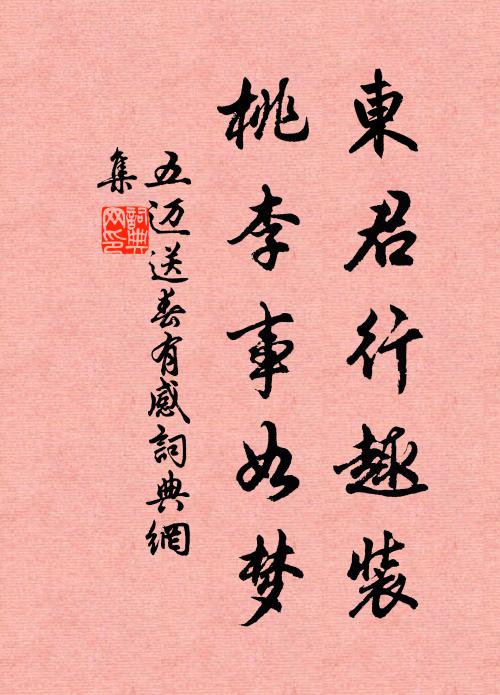 東君行趣装
桃李事如梦
五迈送春有感詞典網
集
詞典网印